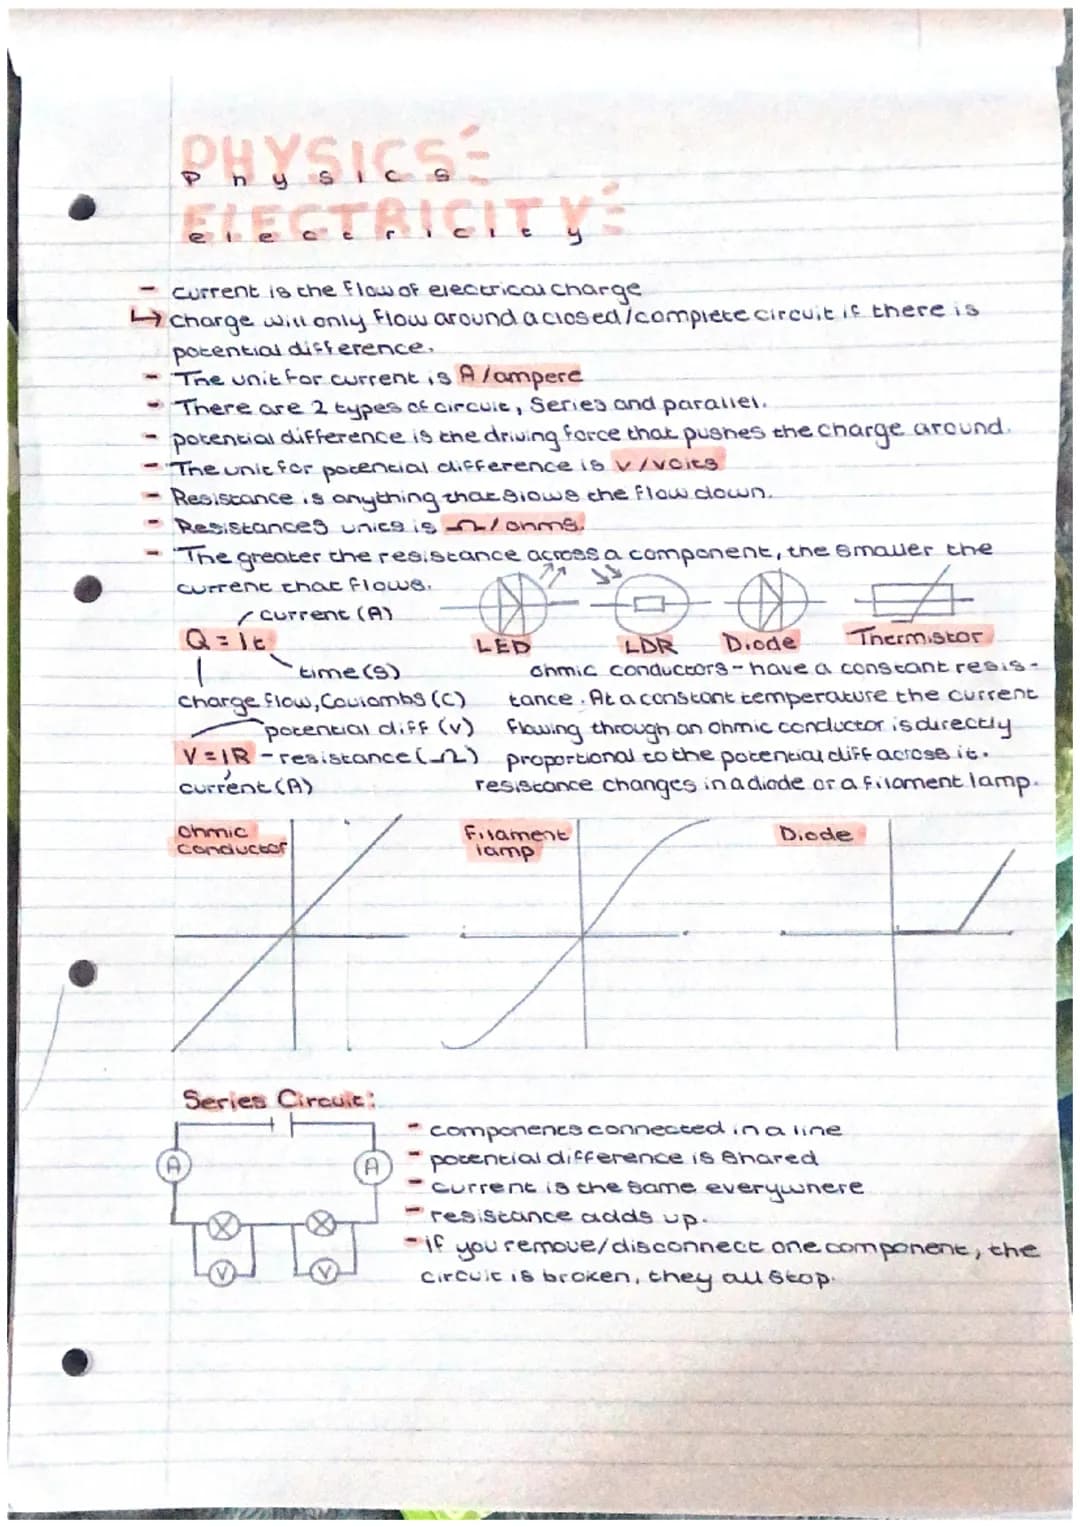 PHYSICS
Physics
ELECTRICITY
electricity
- current is the flow of electrical charge
↳ charge will only flow around a closed/complete circuit if there is
potential difference.
- The unit for current is A/ampere
- There are 2 types of circuit, Series and parallel.
- potential difference is the driving force that pushes the charge around.
- The unit for potential difference is V/volts
- Resistance is anything that slows the flow down.
- Resistances units is Ω/ohms.
- The greater the resistance across a component, the smaller the
current that flows.
current (A)
Q = It
time (s)
charge flow, Coulombs (C)
potential diff (v)
V = IR - resistance (Ω)
current (A)
LED
LDR
Diode
Thermistor
ohmic conductors - have a constant resis-
tance. At a constant temperature the current
flowing through an ohmic conductor is directly
proportional to the potential diff across it.
resistance changes in a diode or a filament lamp.
Ohmic
conductor
Filament
lamp
Diode
Series Circuit:
A
A
V
V
- components connected in a line
- potential difference is shared
- current is the same everywhere
- resistance adds up.
- if you remove/disconnect one component, the
circuit is broken, they all stop.